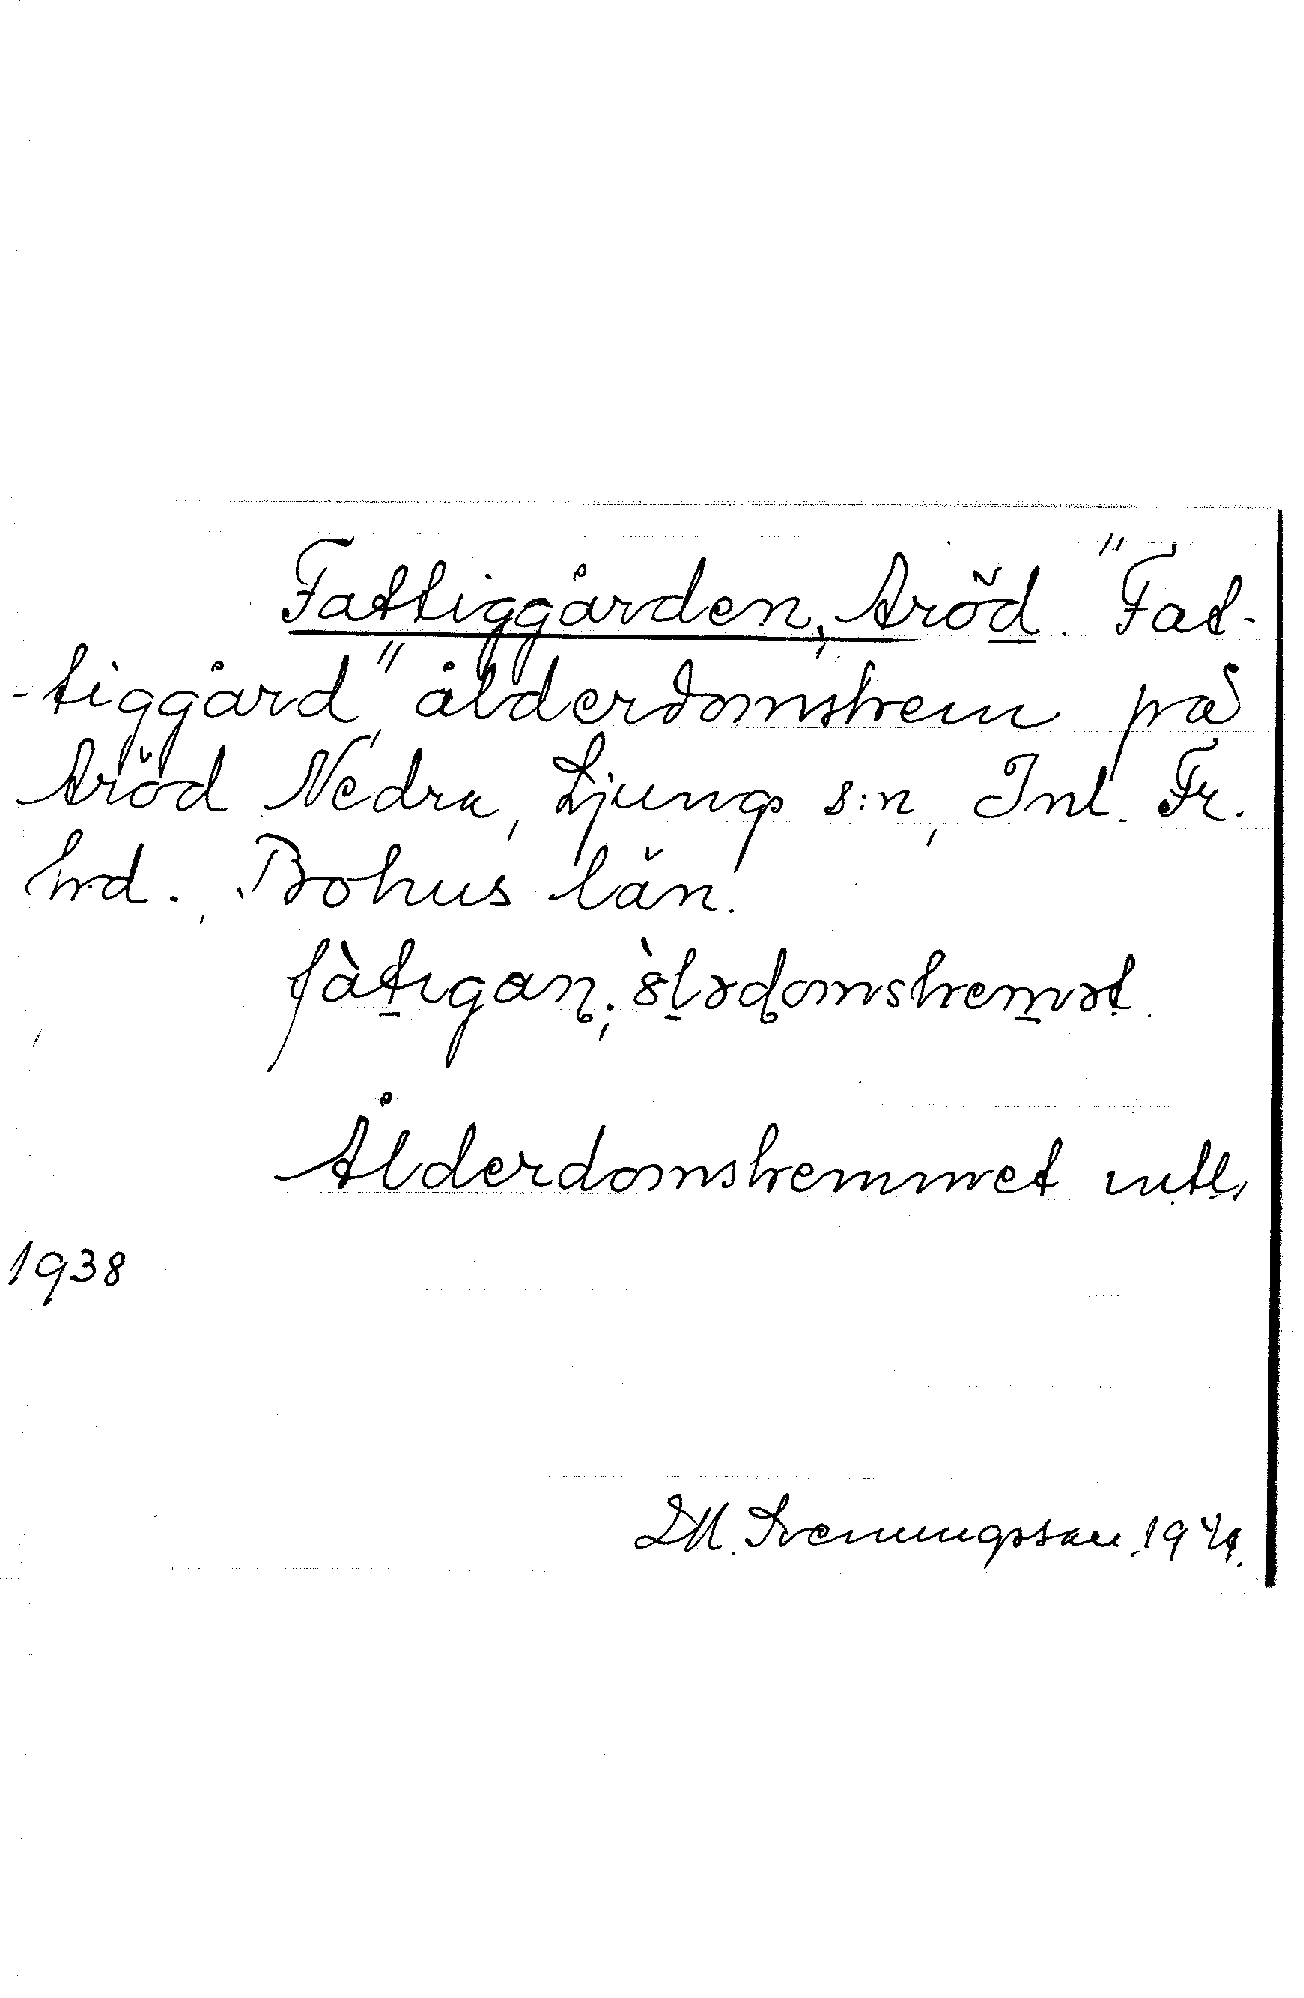 Fattiggården, Aröd. "Fat-
-tiggård", ålderdomshem på
Aröd Nedra, Ljungs s:n, Inl. Fr.
hrd., Bohus län.
fàtigan; ålədomshemət
Ålderdomshemmet
1938
D.M. Sveningsson